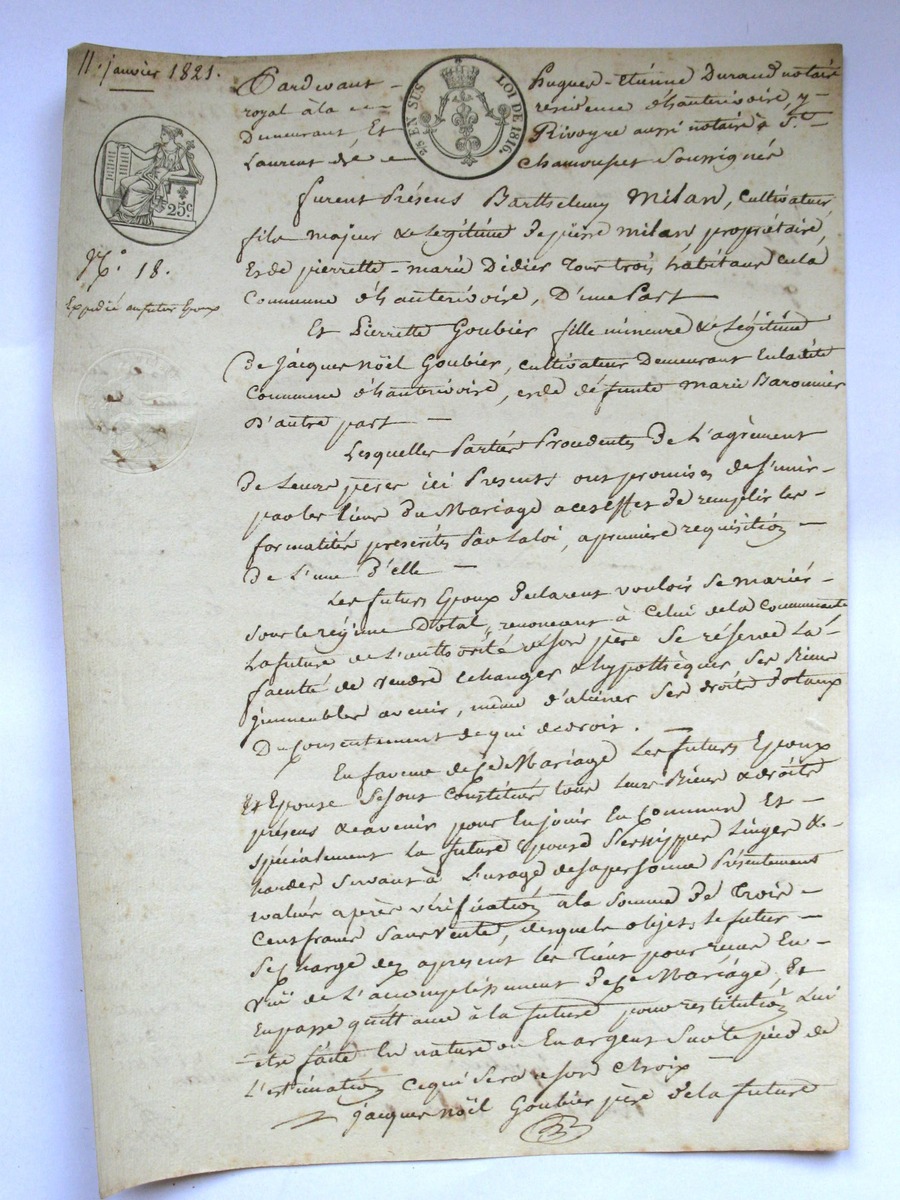 11. janvier 1821.
25 EN SUS
LOI DE 1816.
25c
N.° 18.
Expédié au futur Epoux
Pardevant Hugues-Etienne Durand notaire
royal à la residence d'hauterivoire, y
Demeurant Et Rivoyre aussi notaire à St
Laurent de Chamousset Soussignés
furent Présens Barthelemy Milan, cultivateur
fils majeur & Légitime De pierre milan propriétaire,
Et de pierrette-marie Didier Tous trois habitans en la
Commune d'hauterivoire, D'une Part
Et Pierrette Goubier fille mineure & Légitime
De Jacques Noël Goubier, cultivateur Demeurant En ladite
Commune d'hauterivoire, et de défunte Marie Baronnier
D'autre part —
Lesquelles Parties Procedentes De L'agrément
De Leurs pères ici Présents ont promises de s'unir
par les liens Du Mariage à cet effet De remplir les
formalités prescrites Par La loi, a premiere requisition
De L'une D'elle —
Les futurs Epoux Declarent vouloir se mariér
Sous le régime Dotal, renonceant à Celui de la Communauté
La future de L'authorité de son père Se réserve La
faculté de vendre echanger & hypothèquer Ses Biens
jmmeubles avenir, même d'aliéner Ses droits Dotaux
Du Consentement de qui de droit.
En faveur de Ce Mariage Les futurs Epoux
Et Epouse Se sont Constitués tous Leurs Biens & droits
présens & avenir pour En jouir En Commun Et
spécialement La future Epouse Ses nippes Linges &
hardes Servant à L'usage de sa personne Présentement
valués après vérification à la Somme De Trois
Cent francs Sans vente, desquels objets le futur
Se charge des apresent les Tient pour reçus En
vuë de L'accomplissement De Ce Mariage, Et
En passe quittance à la future pour restitution Lui
etre faite En nature ou En argent Sur le pied de
L'estimation Ce qui Sera a son Choix —
Jacques Noël Goubier père De la future